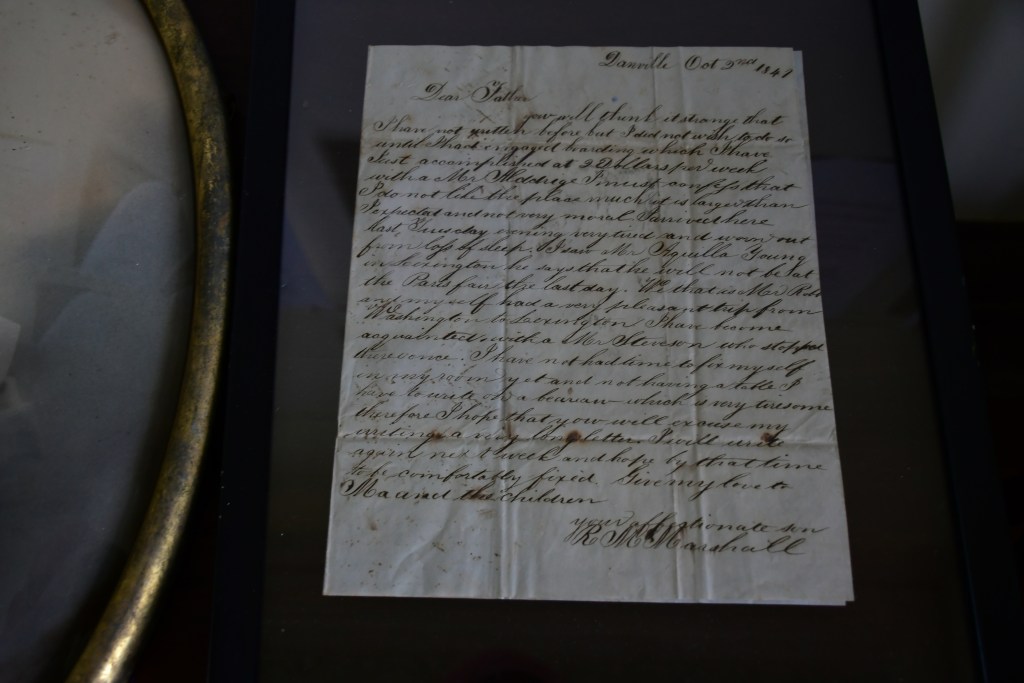 Danville Oct 2nd 1847
Dear Father
you will think it strange that
I have not written before but I did not wish to do so
until I had engaged boarding which I have
Just accomplished at 2 Dollars per week
with a Mr Aldridge I must confess that
I do not like the place much it is larger than
I expected and not very moral I arrived here
last Tuesday evening very tired and worn out
from loss of sleep. I saw Mr Aquilla Young
in Lexington he says that he will not be at
the Paris fair the last day. We that is Mr
and myself had a very pleasant trip from
Washington to Lexington I have become
acquainted with a Mr Steveson who stopped
there once. I have not had time to fix myself
in my room yet and not having a table I
have to write on a beaurau which is very tiresome
therefore I hope that you will excuse my
writing a very long letter. I will write
again next week and hope by that time
to be comfortably fixed Give my love to
Ma and the children
your affectionate son
M Marshall